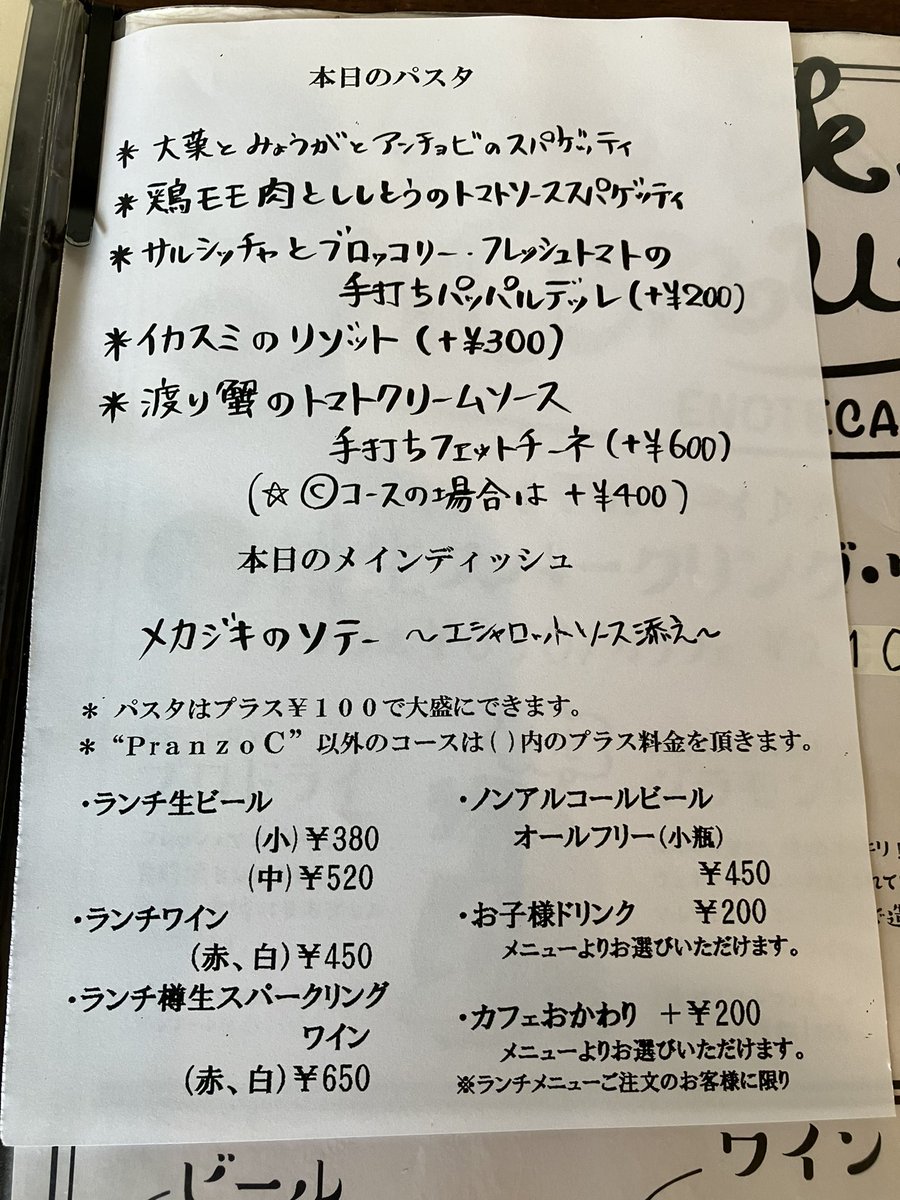 本日のパスタ
* 大葉とみょうがとアンチョビのスパゲッティ
* 鶏モモ肉とししとうのトマトソーススパゲッティ
* サルシッチャとブロッコリー・フレッシュトマトの
手打ちパッパルデッレ (+¥200)
* イカスミのリゾット (+¥300)
* 渡り蟹のトマトクリームソース
手打ちフェットチーネ (+¥600)
(☆ⒸコースのI場合は +¥400)
本日のメインディッシュ
メカジキのソテー 〜エシャロットソース添え〜
＊ パスタはプラス￥１００で大盛にできます。
＊ “ＰｒａｎｚｏＣ” 以外のコースは( )内のプラス料金を頂きます。
・ランチ生ビール
(小)￥380
(中)￥520
・ランチワイン
(赤、白)￥450
・ランチ樽生スパークリング
ワイン
(赤、白)￥650
・ノンアルコールビール
オールフリー(小瓶)
￥450
・お子様ドリンク ￥200
メニューよりお選びいただけます。
・カフェおかわり ＋￥200
メニューよりお選びいただけます。
※ランチメニューご注文のお客様に限り
ビール
ワイン